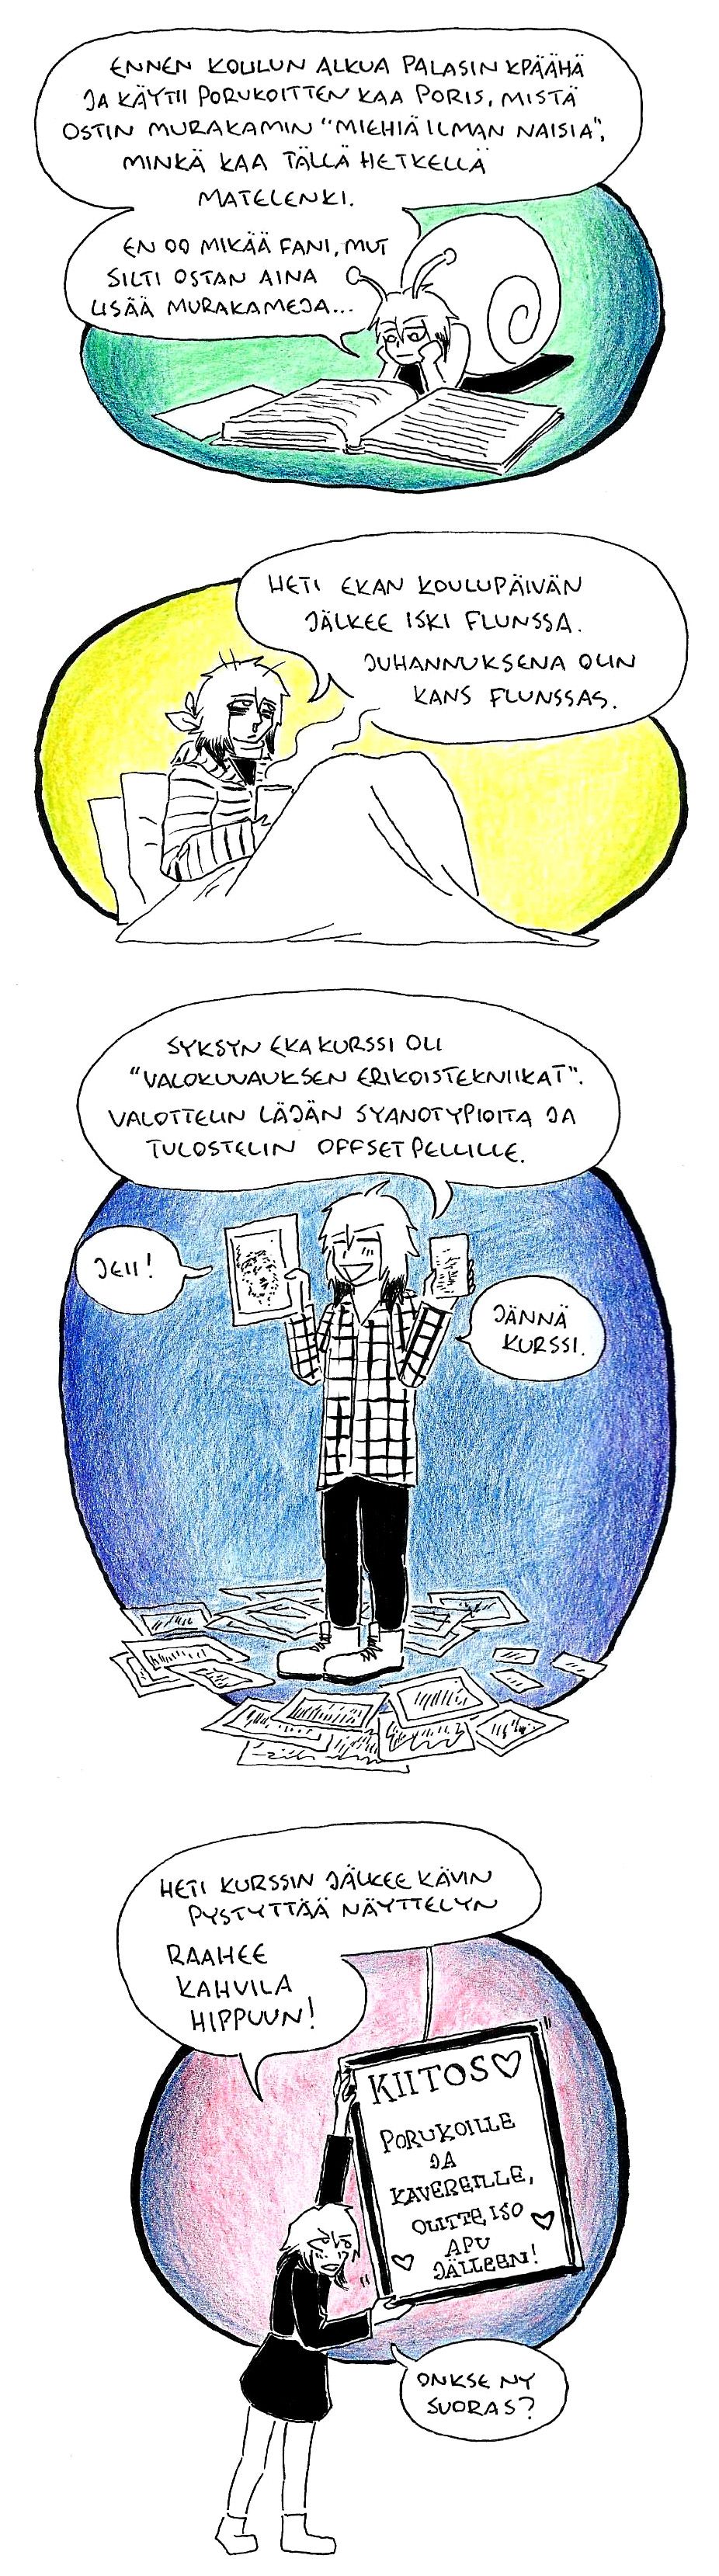 ENNEN KOULUN ALKUA PALASIN KPÄÄHÄ
JA KÄYTII PORUKOITTEN KAA PORIS, MISTÄ
OSTIN MURAKAMIN "MIEHIÄ ILMAN NAISIA",
MINKÄ KAA TÄLLÄ HETKELLÄ
MATELENKI.
EN OO MIKÄÄ FANI, MUT
SILTI OSTAN AINA
LISÄÄ MURAKAMEJA...
HETI EKAN KOULUPÄIVÄN
JÄLKEE ISKI FLUNSSA.
JUHANNUKSENA OLIN
KANS FLUNSSAS.
SYKSYN EKA KURSSI OLI
"VALOKUVAUKSEN ERIKOISTEKNIIKAT".
VALOTTELIN LÄJÄN SYANOTYPIOITA JA
TULOSTELIN OFFSETPELLILLE.
JEII!
JÄNNÄ
KURSSI.
HETI KURSSIN JÄLKEE KÄVIN
PYSTYTTÄÄ NÄYTTELYN
RAAHEE
KAHVILA
HIPPUUN!
KIITOS♡
PORUKOILLE
JA
KAVEREILLE,
OLITTE ISO
APU
JÄLLEEN!
ONKSE NY
SUORAS?